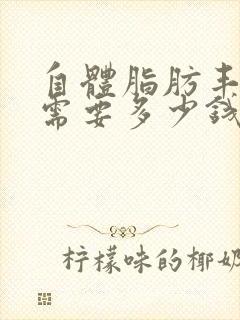 自體脂肪丰
需要多少錢
柠檬味的椰奶